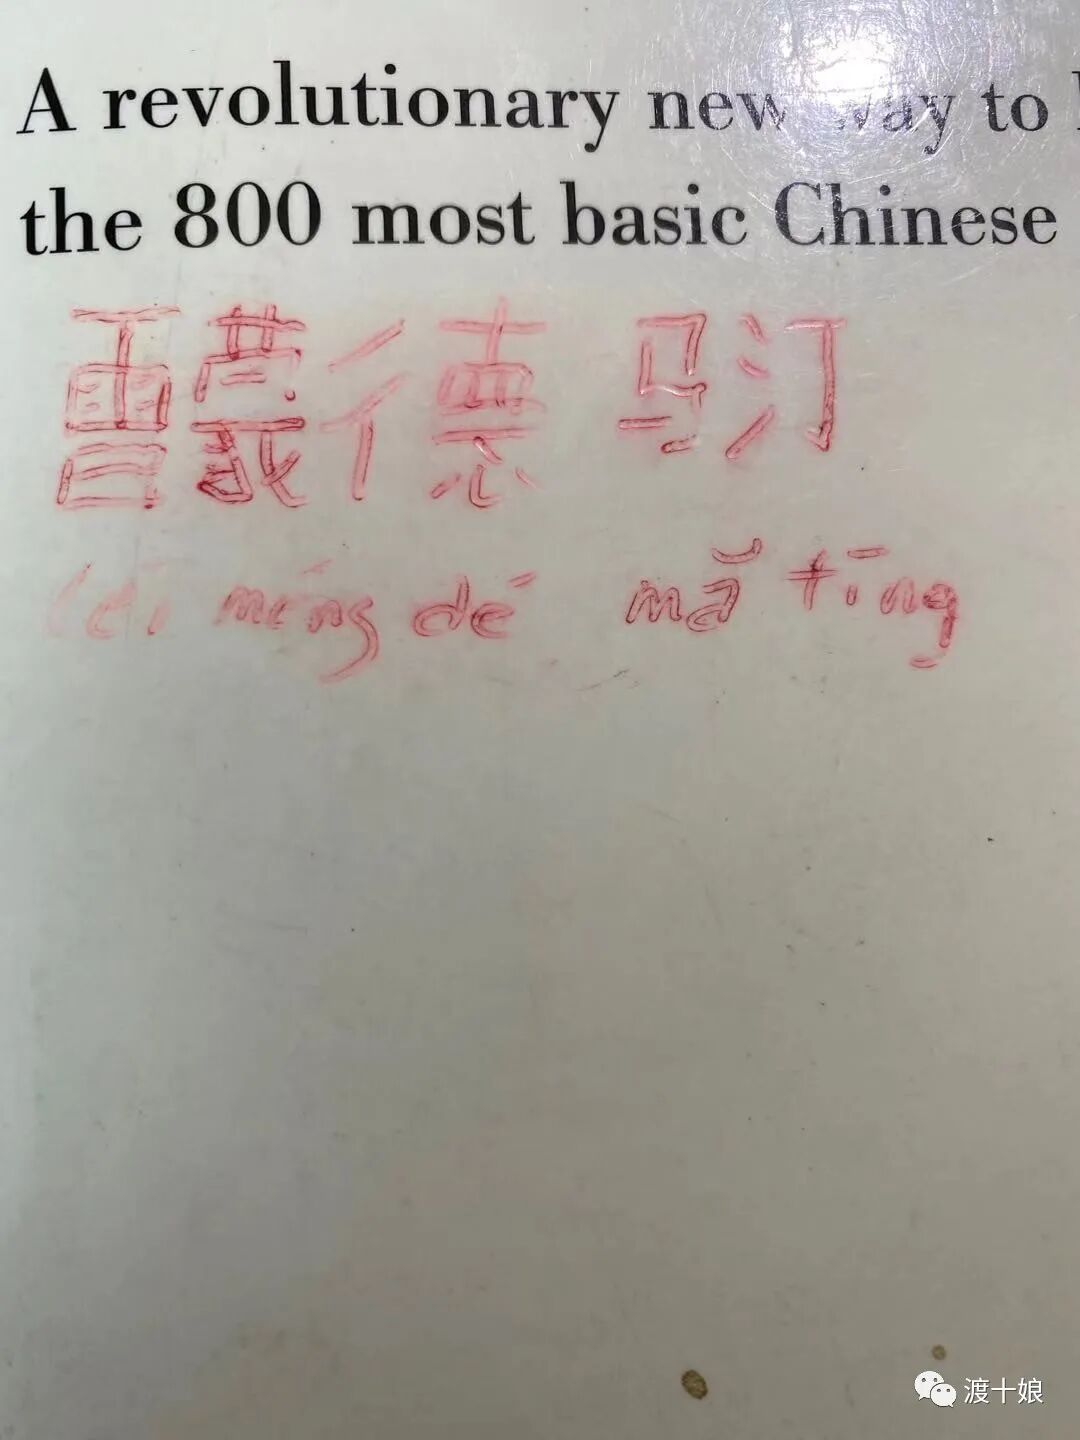 A revolutionary new way to
the 800 most basic Chinese
雷蒙德 马汀
léi méng dé mǎ tīng
渡十娘